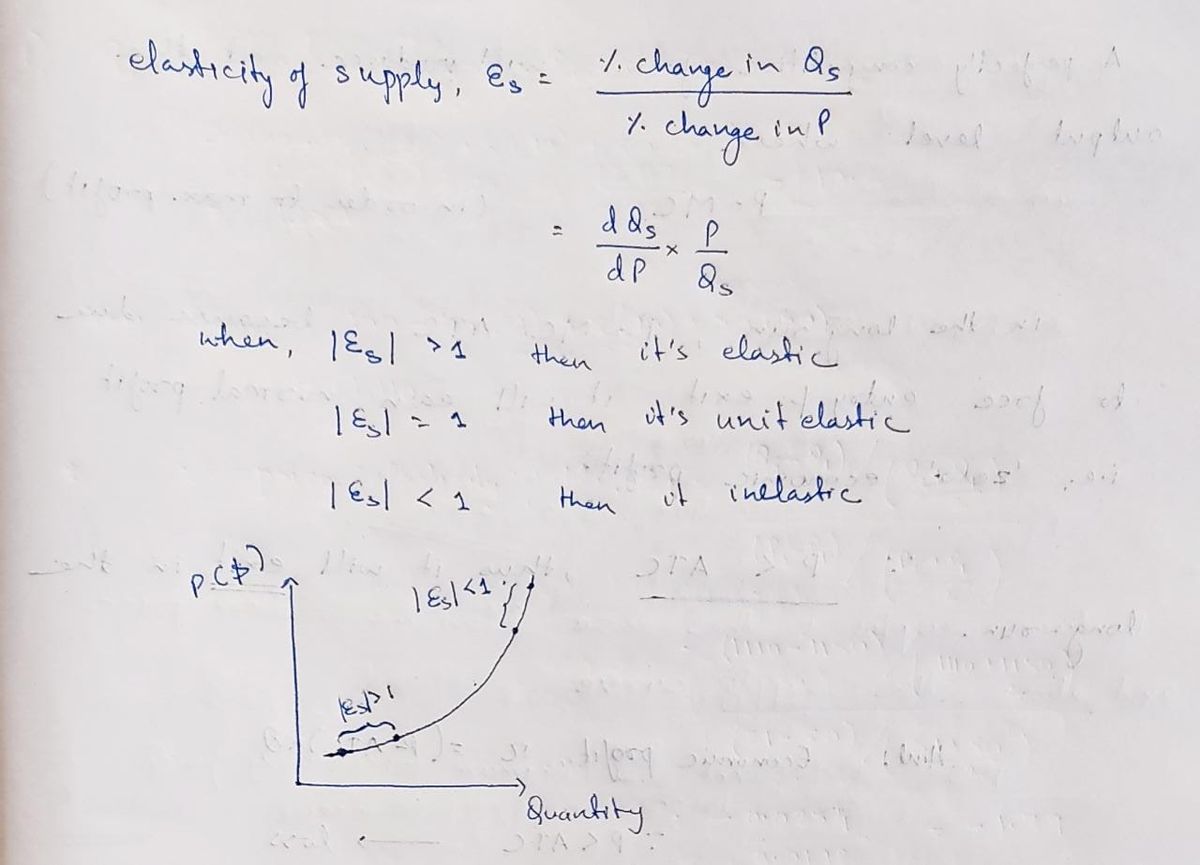 elasticity of supply, εs = % change in Qs
% change in P
= dQs/dP × P/Qs
when, |εs| > 1 then it's elastic
|εs| = 1 then it's unit elastic
|εs| < 1 then it inelastic
P($)
|εs|<1
|εs|>1
Quantity